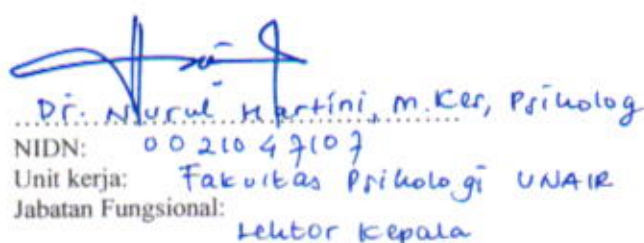 Dr. Nurul Hartini, M.Kes, Psikolog
NIDN: 0021047107
Unit kerja: Fakultas Psikologi UNAIR
Jabatan Fungsional:
Lektor Kepala